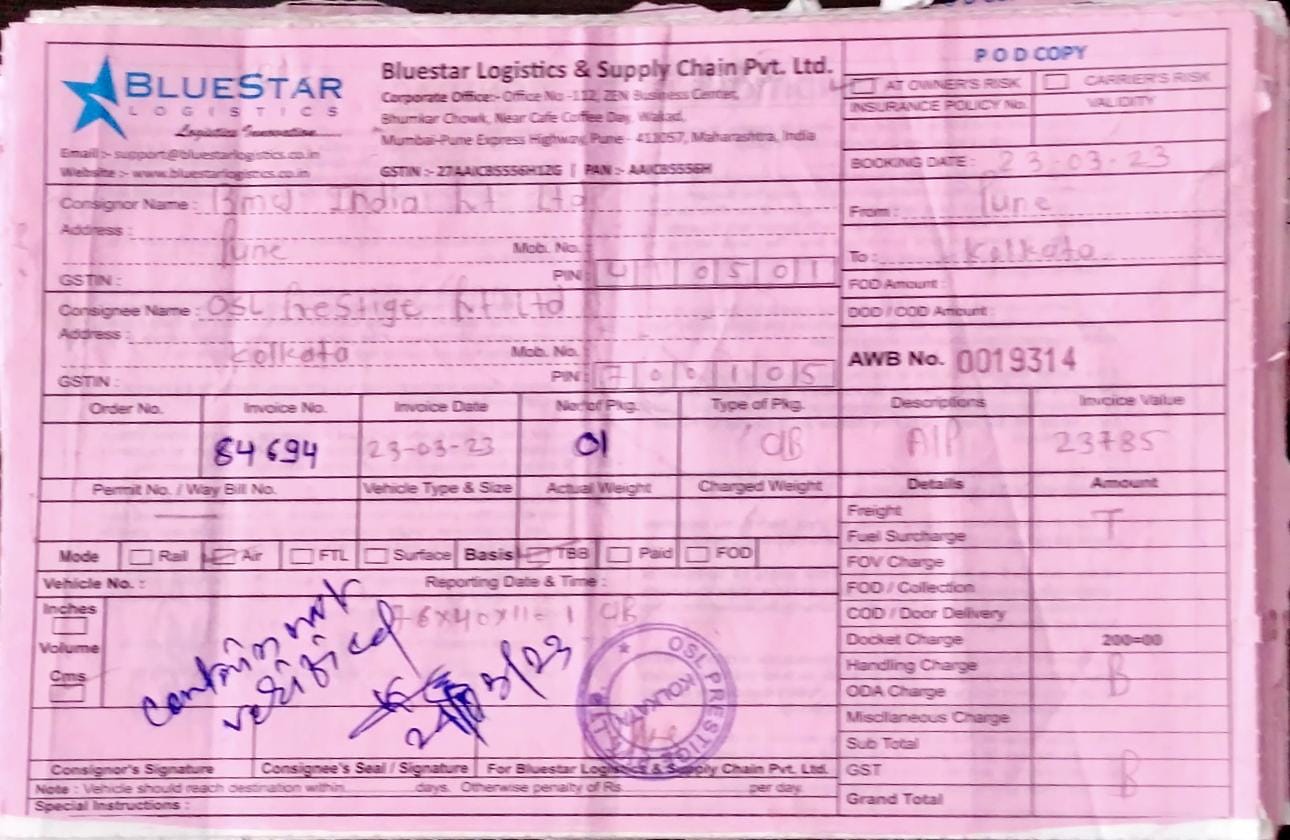 BLUESTAR
LOGISTICS
Logistics Innovation
Email :- support@bluestarlogistics.co.in
Website :- www.bluestarlogistics.co.in
Bluestar Logistics & Supply Chain Pvt. Ltd.
Corporate Office:- Office No -112, ZEN Business Center,
Bhumkar Chowk, Near Cafe Coffee Day, Wakad,
Mumbai-Pune Express Highway, Pune - 411057, Maharashtra, India
GSTIN :- 27AAICB5556H1ZG | PAN :- AAICB5556H
POD COPY
AT OWNER'S RISK CARRIER'S RISK
INSURANCE POLICY No. VALIDITY
BOOKING DATE : 23-03-23
Consignor Name : India Pvt Ltd
Address :
Pune Mob. No.
GSTIN : PIN: 410501
From : Pune
To : Kolkata
FOD Amount :
DOD / COD Amount :
Consignee Name : OSL Prestige Pvt Ltd
Address :
Kolkata Mob. No.
GSTIN : PIN: 700105
AWB No. 0019314
Order No. Invoice No. Invoice Date No. of Pkg. Type of Pkg. Descriptions Invoice Value
84694 23-03-23 01 CB A/P 23785
Permit No. / Way Bill No. Vehicle Type & Size Actual Weight Charged Weight Details Amount
Freight T
Fuel Surcharge
Mode Rail Air FTL Surface Basis TBB Paid FOD
FOV Charge
Vehicle No. : Reporting Date & Time :
FOD / Collection
Inches
76x40x11-1 CB
COD / Door Delivery
Volume
Docket Charge 200=00
Cms
Handling Charge B
ODA Charge
Miscllaneous Charge
Sub Total
GST B
Grand Total
OSL PRESTIGE PVT LTD
KOLKATA
Consignor's Signature Consignee's Seal / Signature For Bluestar Logistics & Supply Chain Pvt. Ltd.
Note : Vehicle should reach destination within days. Otherwise penalty of Rs. per day.
Special Instructions :